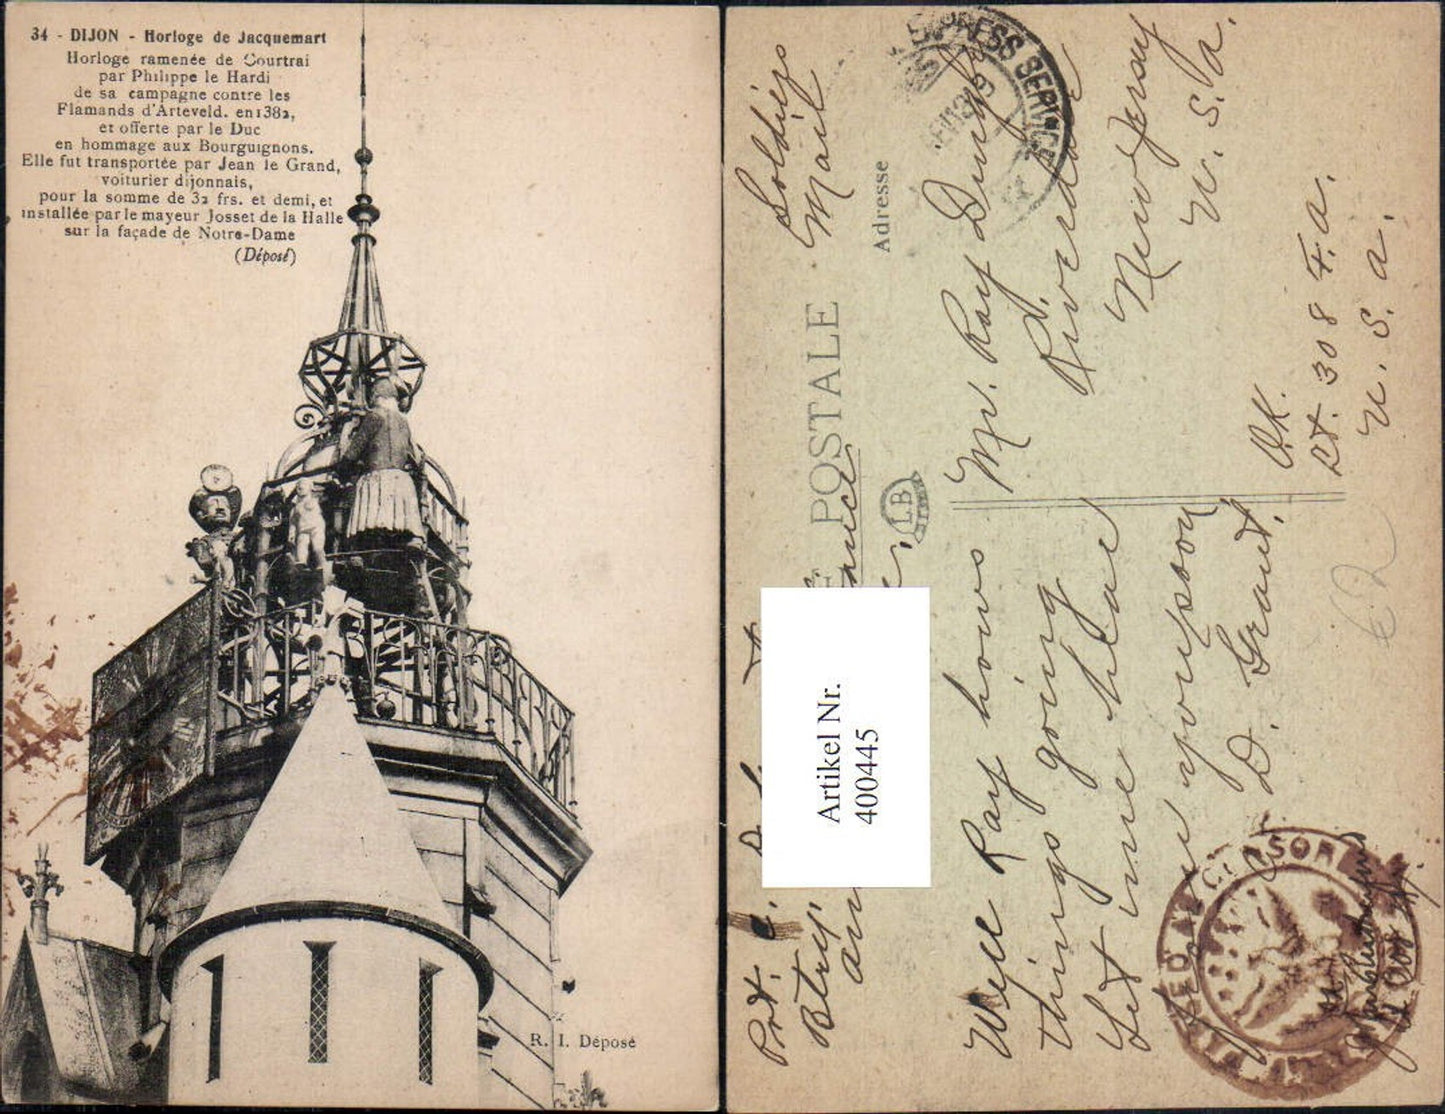 34 - DIJON - Horloge de Jacquemart
Horloge ramenée de Courtrai
par Philippe le Hardi
de sa campagne contre les
Flamands d'Arteveld. en 1382,
et offerte par le Duc
en hommage aux Bourguignons.
Elle fut transportée par Jean le Grand,
voiturier dijonnais,
pour la somme de 32 frs. et demi, et
installée par le mayeur Josset de la Halle
sur la façade de Notre-Dame
(Déposé)
R. I. Déposé
EXPRESS SERVICE
Soldiers
Mail
POSTALE
Adresse
LB
Mr. Ray
Riverdale
New Jersey
U. S. a.
O.K.
Lt. 308 F. a.
U. S. a.
Artikel Nr.
400445
Pvt.
Btry.
Well Ray hows
things going
Let me hear
D. Grant.
CENSOR
€2